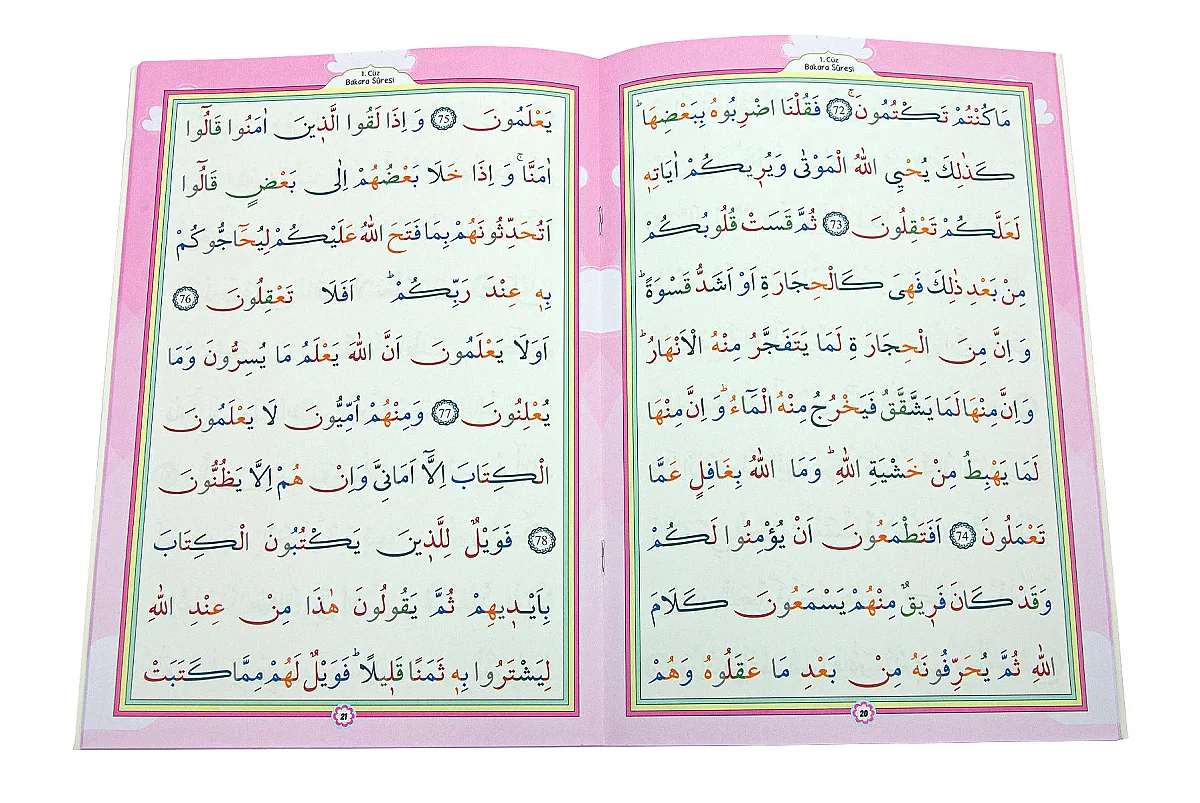 1. Cüz
Bakara Sûresi
مَا كُنْتُمْ تَكْتُمُونَۚ 72 فَقُلْنَا اضْرِبُوهُ بِبَعْضِهَاۜ
كَذٰلِكَ يُحْيِي اللّٰهُ الْمَوْتٰى وَيُر۪يكُمْ اٰيَاتِه۪
لَعَلَّكُمْ تَعْقِلُونَ 73 ثُمَّ قَسَتْ قُلُوبُكُمْ
مِنْ بَعْدِ ذٰلِكَ فَهِيَ كَالْحِجَارَةِ اَوْ اَشَدُّ قَسْوَةًۜ
وَاِنَّ مِنَ الْحِجَارَةِ لَمَا يَتَفَجَّرُ مِنْهُ الْاَنْهَارُۜ
وَاِنَّ مِنْهَا لَمَا يَشَّقَّقُ فَيَخْرُجُ مِنْهُ الْمَٓاءُۜ وَاِنَّ مِنْهَا
لَمَا يَهْبِطُ مِنْ خَشْيَةِ اللّٰهِۜ وَمَا اللّٰهُ بِغَافِلٍ عَمَّا
تَعْمَلُونَ 74 اَفَتَطْمَعُونَ اَنْ يُؤْمِنُوا لَكُمْ
وَقَدْ كَانَ فَر۪يقٌ مِنْهُمْ يَسْمَعُونَ كَلَامَ
اللّٰهِ ثُمَّ يُحَرِّفُونَهُ مِنْ بَعْدِ مَا عَقَلُوهُ وَهُمْ
20
1. Cüz
Bakara Sûresi
يَعْلَمُونَ 75 وَاِذَا لَقُوا الَّذ۪ينَ اٰمَنُوا قَالُٓوا
اٰمَنَّاۚ وَاِذَا خَلَا بَعْضُهُمْ اِلٰى بَعْضٍ قَالُٓوا
اَتُحَدِّثُونَهُمْ بِمَا فَتَحَ اللّٰهُ عَلَيْكُمْ لِيُحَٓاجُّوكُمْ
بِه۪ عِنْدَ رَبِّكُمْۜ اَفَلَا تَعْقِلُونَ 76
اَوَلَا يَعْلَمُونَ اَنَّ اللّٰهَ يَعْلَمُ مَا يُسِرُّونَ وَمَا
يُعْلِنُونَ 77 وَمِنْهُمْ اُمِّيُّونَ لَا يَعْلَمُونَ
الْكِتَابَ اِلَّٓا اَمَانِيَّ وَاِنْ هُمْ اِلَّا يَظُنُّونَ
78 فَوَيْلٌ لِلَّذ۪ينَ يَكْتُبُونَ الْكِتَابَ
بِاَيْد۪يهِمْ ثُمَّ يَقُولُونَ هٰذَا مِنْ عِنْدِ اللّٰهِ
لِيَشْتَرُوا بِه۪ ثَمَنًا قَل۪يلًاۜ فَوَيْلٌ لَهُمْ مِمَّا كَتَبَتْ
21